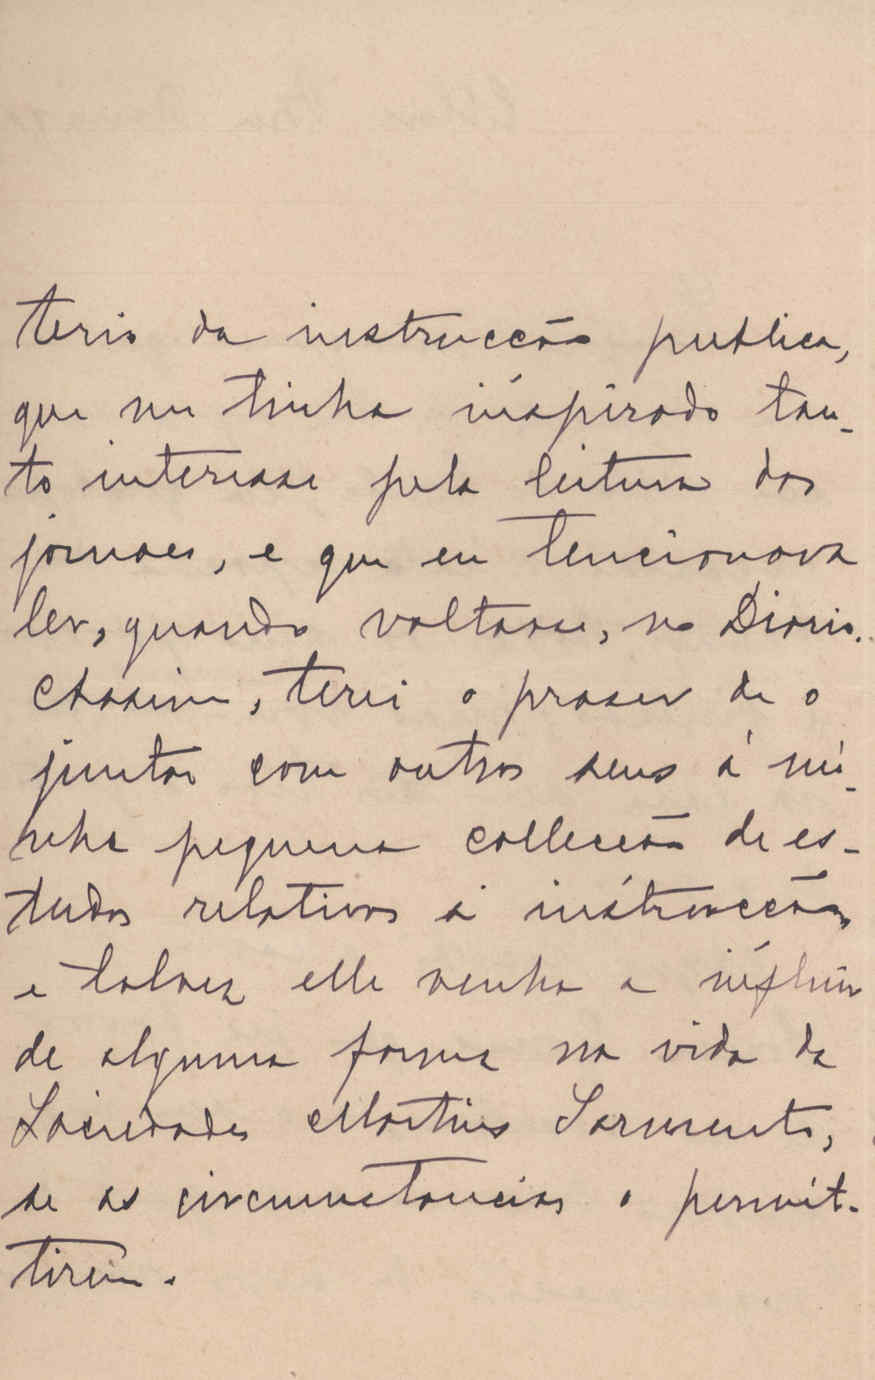 terio da instrucção publica,
que me tinha inspirado tan-
to interesse pela leitura dos
jornaes, e que eu tencionava
ler, quando voltasse, no Diario.
Assim, terei o praser de o
juntar com outros seus á mi-
nha pequena collecção de es-
tudos relativos á instrucção,
e talvez elle venha a influir
de alguma forma na vida da
Sociedade Martins Sarmento,
se as circumstancias o permit-
tirem.